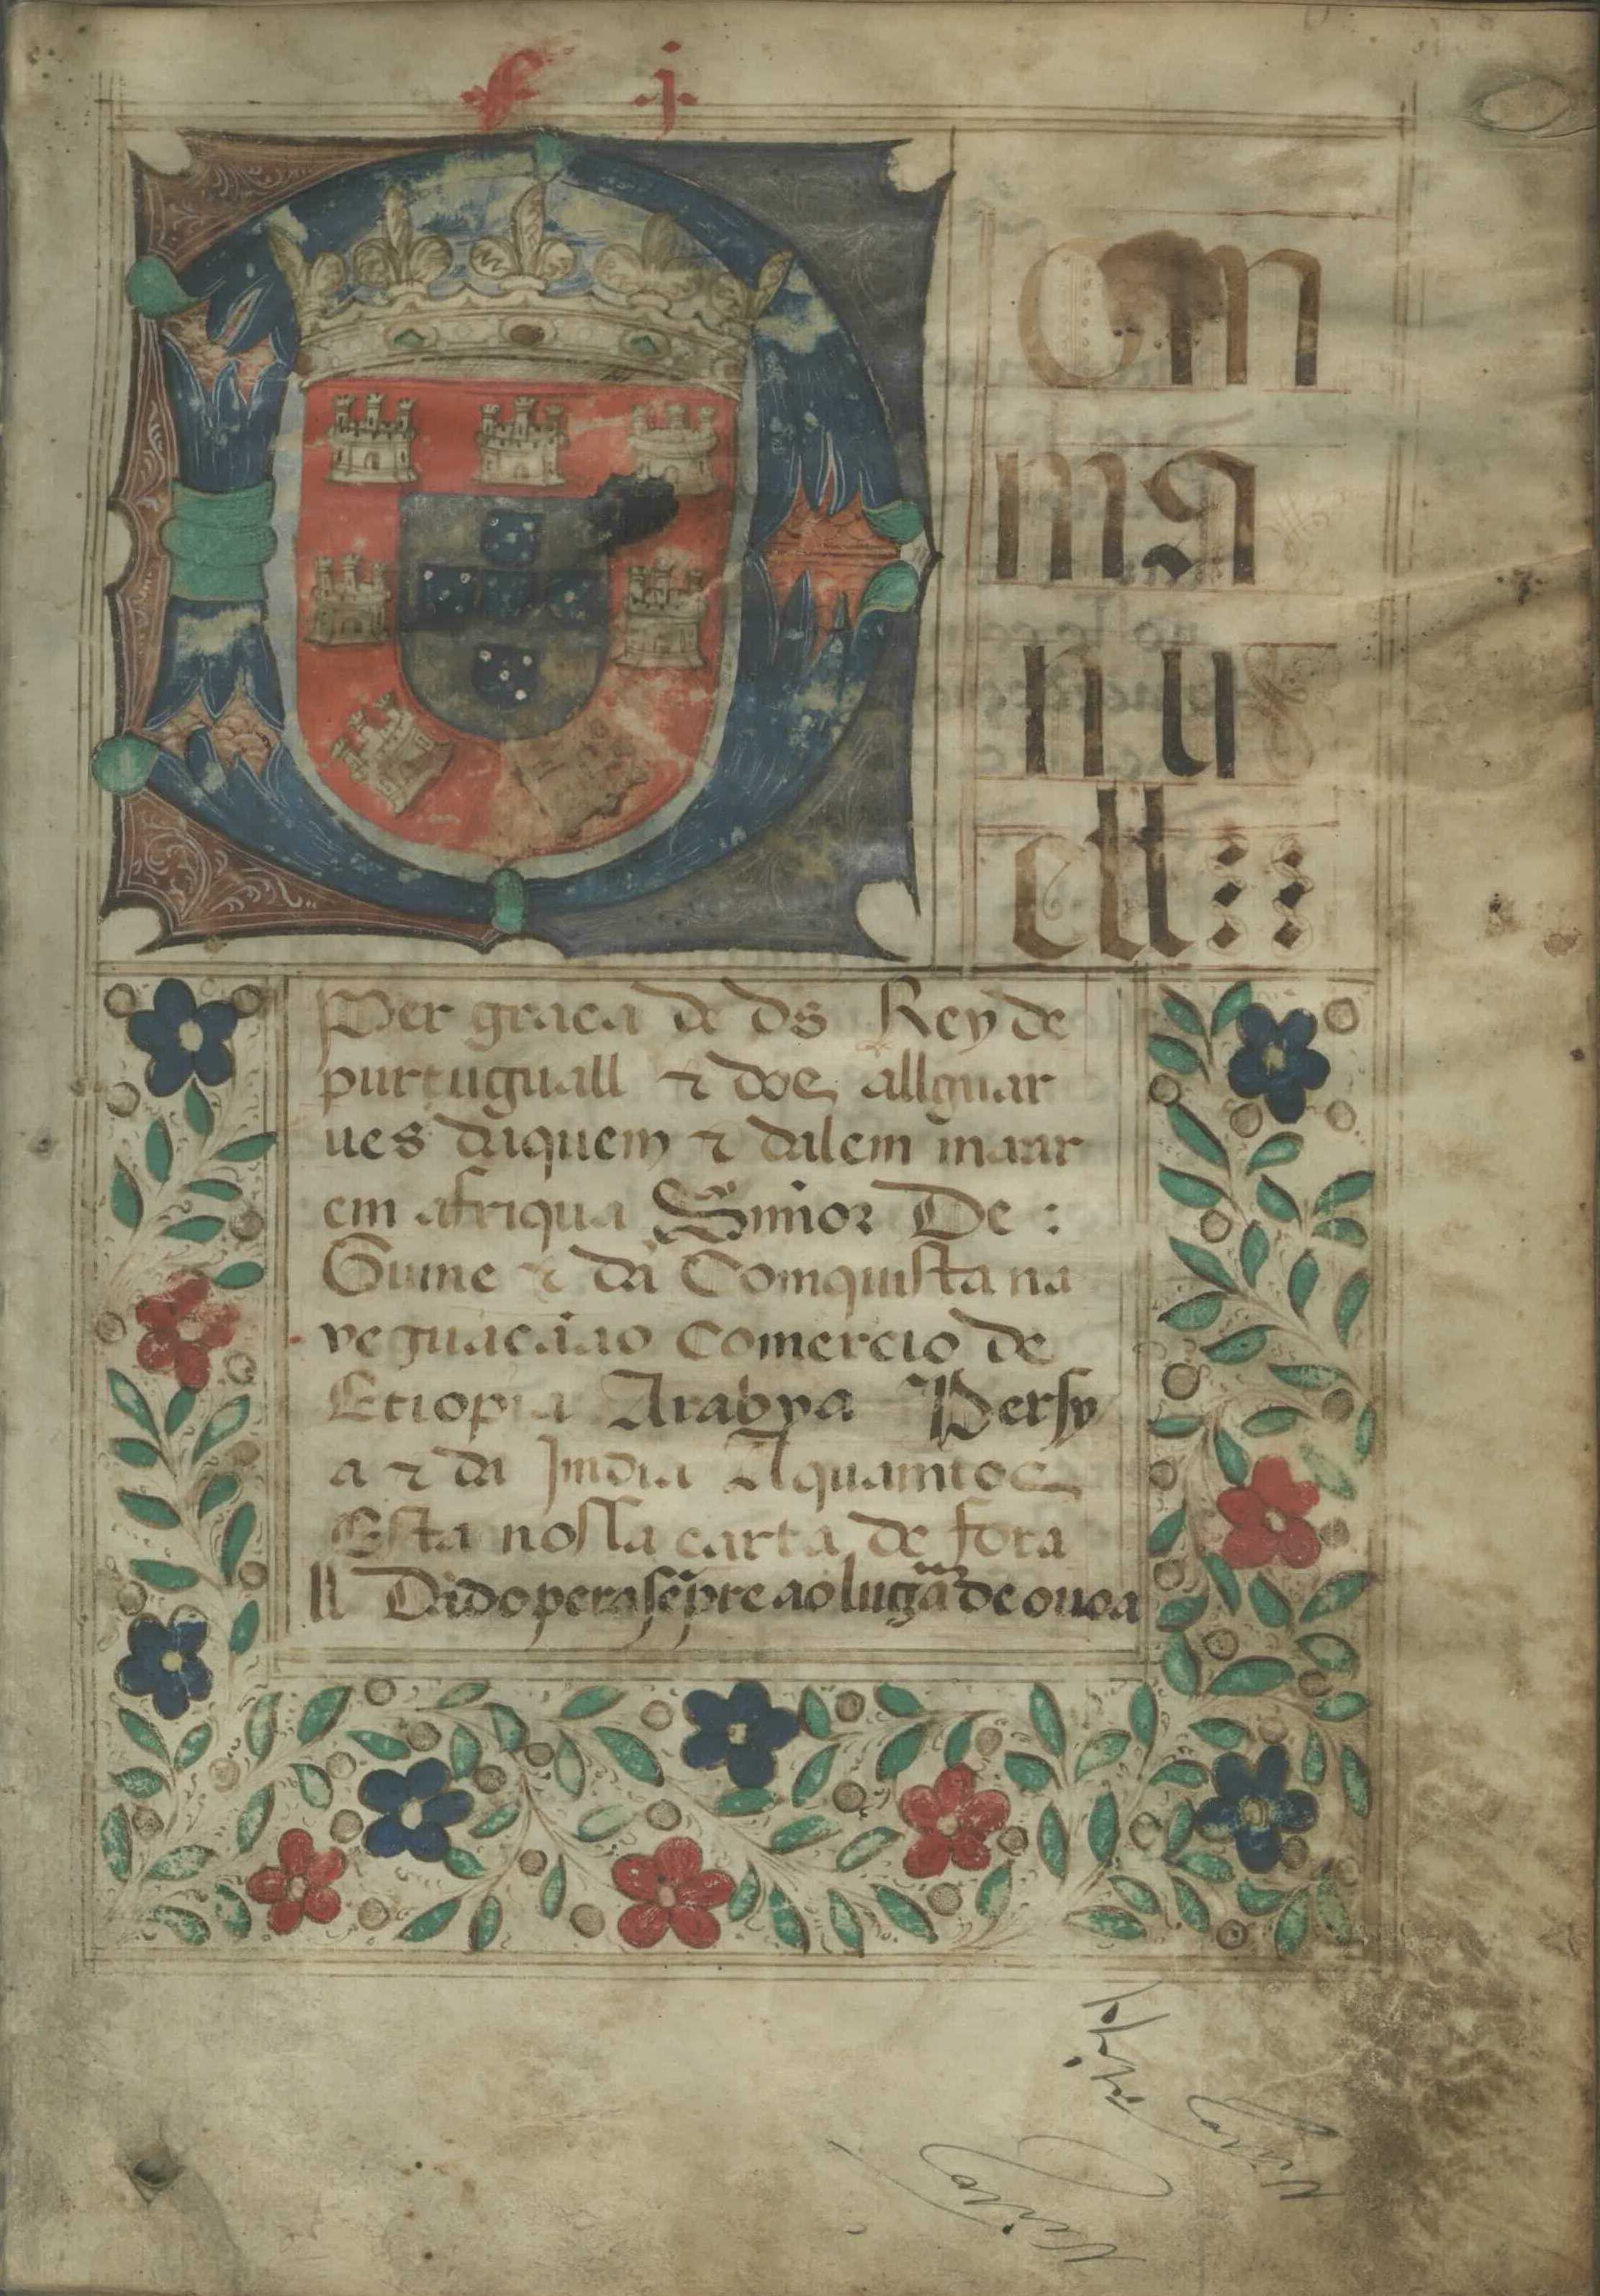 f j
D om
ma
nu
ell
Per graca de ds Rey de
purtuguall ⁊ dos allguar
ues daquem ⁊ dalem maar
em afriqua Snñor De :
Guine ⁊ da Comquista na
veguacãao Comercio de
Etiopia Arabya Persy
a ⁊ da Jmdia Aquamtos
Esta nossa carta de fora
ll Dado pera sẽpre ao lugar de